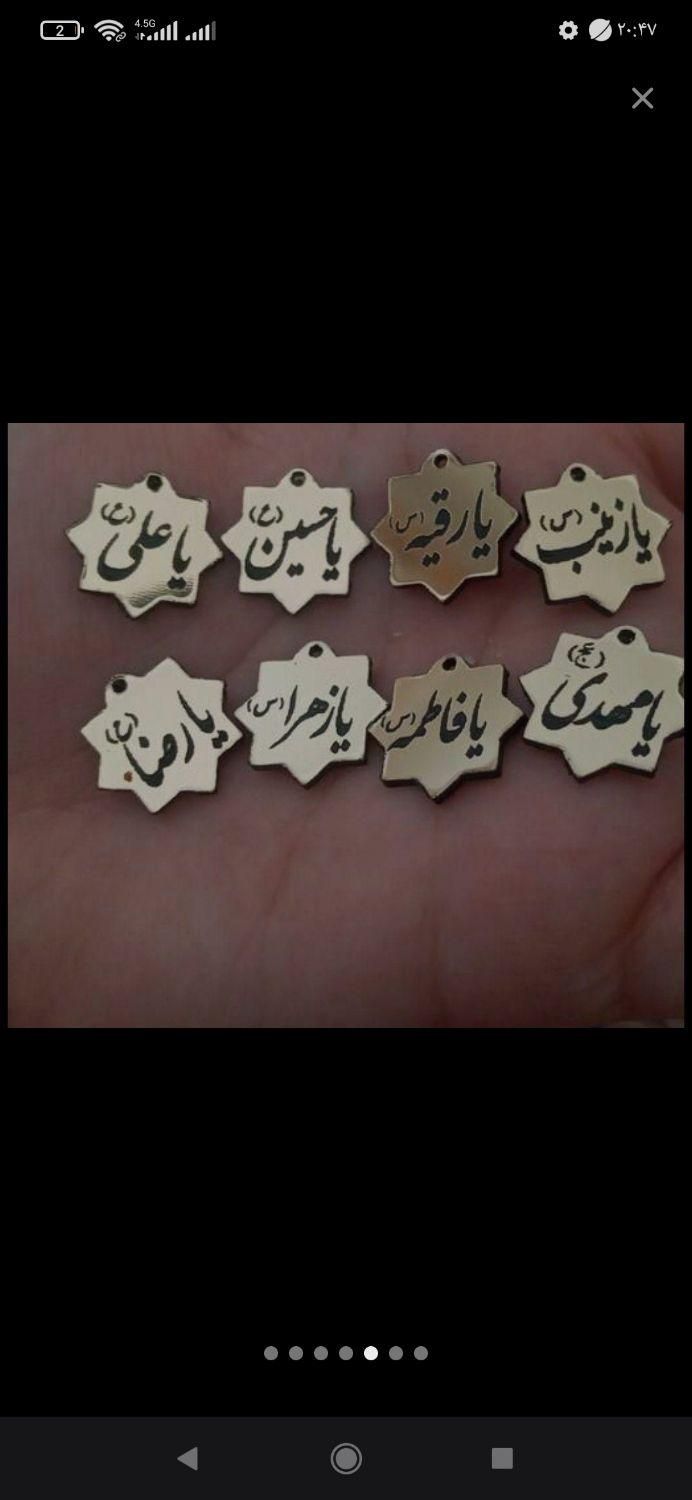 2
4.5G
۲۰:۴۷
یا زینب (س)
یا رقیه (س)
یا حسین (ع)
یا علی (ع)
یا مهدی (عج)
یا فاطمه (س)
یا زهرا (س)
یا رضا (ع)